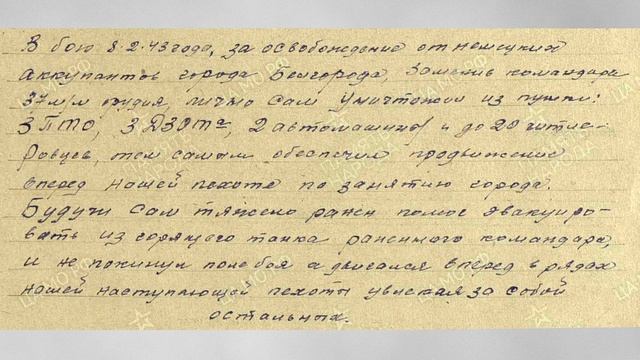 В бою 8.2.43 года, за освобождение от немецких
аккупантов города Белгорода, заменив командира
37 м/м орудия, лично сам уничтожил из пушки:
3 ПТО, 3 ДЗОТа, 2 автомашины и до 20 гитле-
ровцев, тем самым обеспечил продвижение
вперед нашей пехоте по занятию города.
Будучи сам тяжело ранен помог эвакуиро-
вать из горящего танка раненного командира,
и не покинул поле боя а двигался вперед в рядах
нашей наступающей пехоты увлекая за собой
остальных.